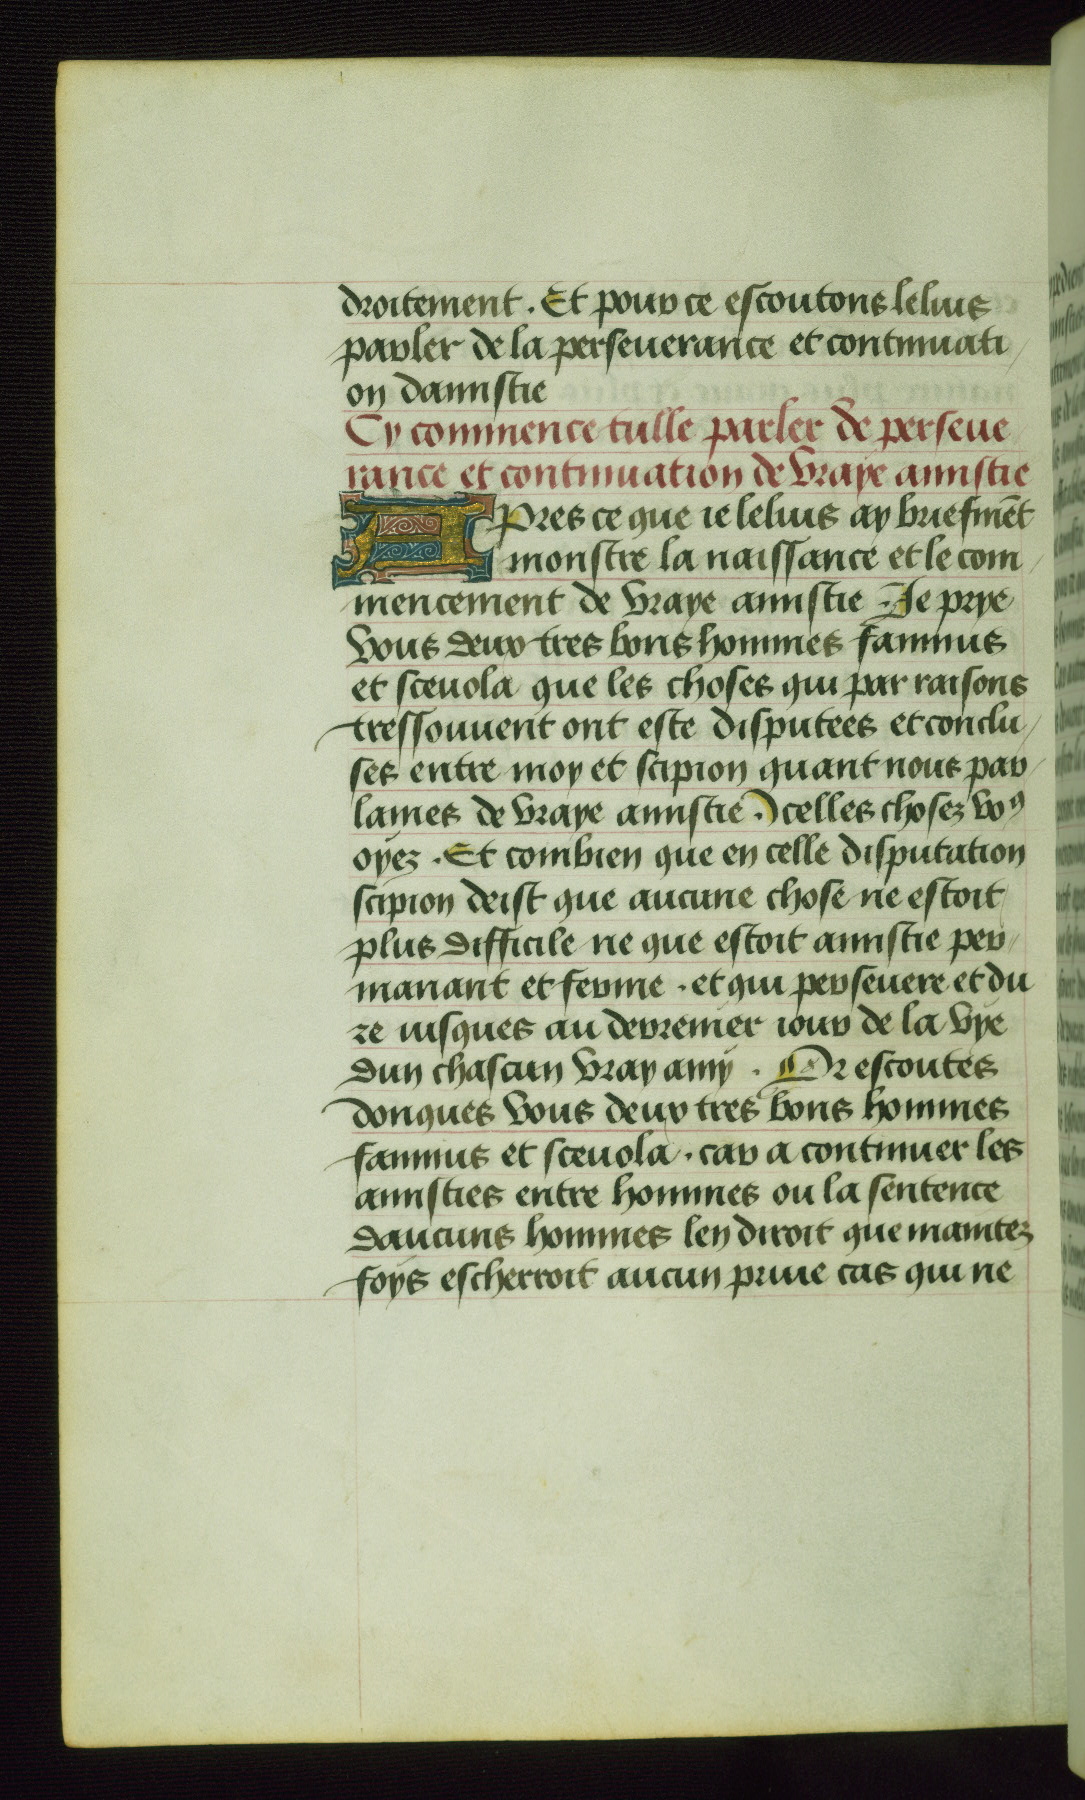 droitement . Et pour ce escoutons lelius
parler de la perseuerance et continuati
on damistie
Cy commence tulle parler de perseue
rance et continuation de vraye amistie
Apres ce que ie lelius ay briefmẽt
monstre la naissance et le com
mencement de vraye amistie . Je prye
vous deux tres bons hommes fannius
et sceuola que les choses qui par raisons
tressouuent ont este disputees et conclu
ses entre moy et scipion quant nous par
lames de vraye amistie . Icelles chosez voꝰ
oyez . Et combien que en celle disputation
scipion deist que aucune chose ne estoit
plus difficile ne que estoit amistie per
manant et ferme . et qui perseuere et du
re iusques au derrenier iour de la vye
dun chascun vray amy . Or escoutes
donques vous deux tres bons hommes
fannius et sceuola . car a continuer les
amisties entre hommes ou la sentence
daucuns hommes len diroit que maintez
foys escherroit aucun priue cas qui ne